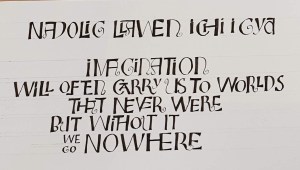 NADOLIG LLAWEN ICHI I GYD
IMAGINATION
WILL OFTEN CARRY US TO WORLDS
THAT NEVER WERE
BUT WITHOUT IT
WE GO NOWHERE